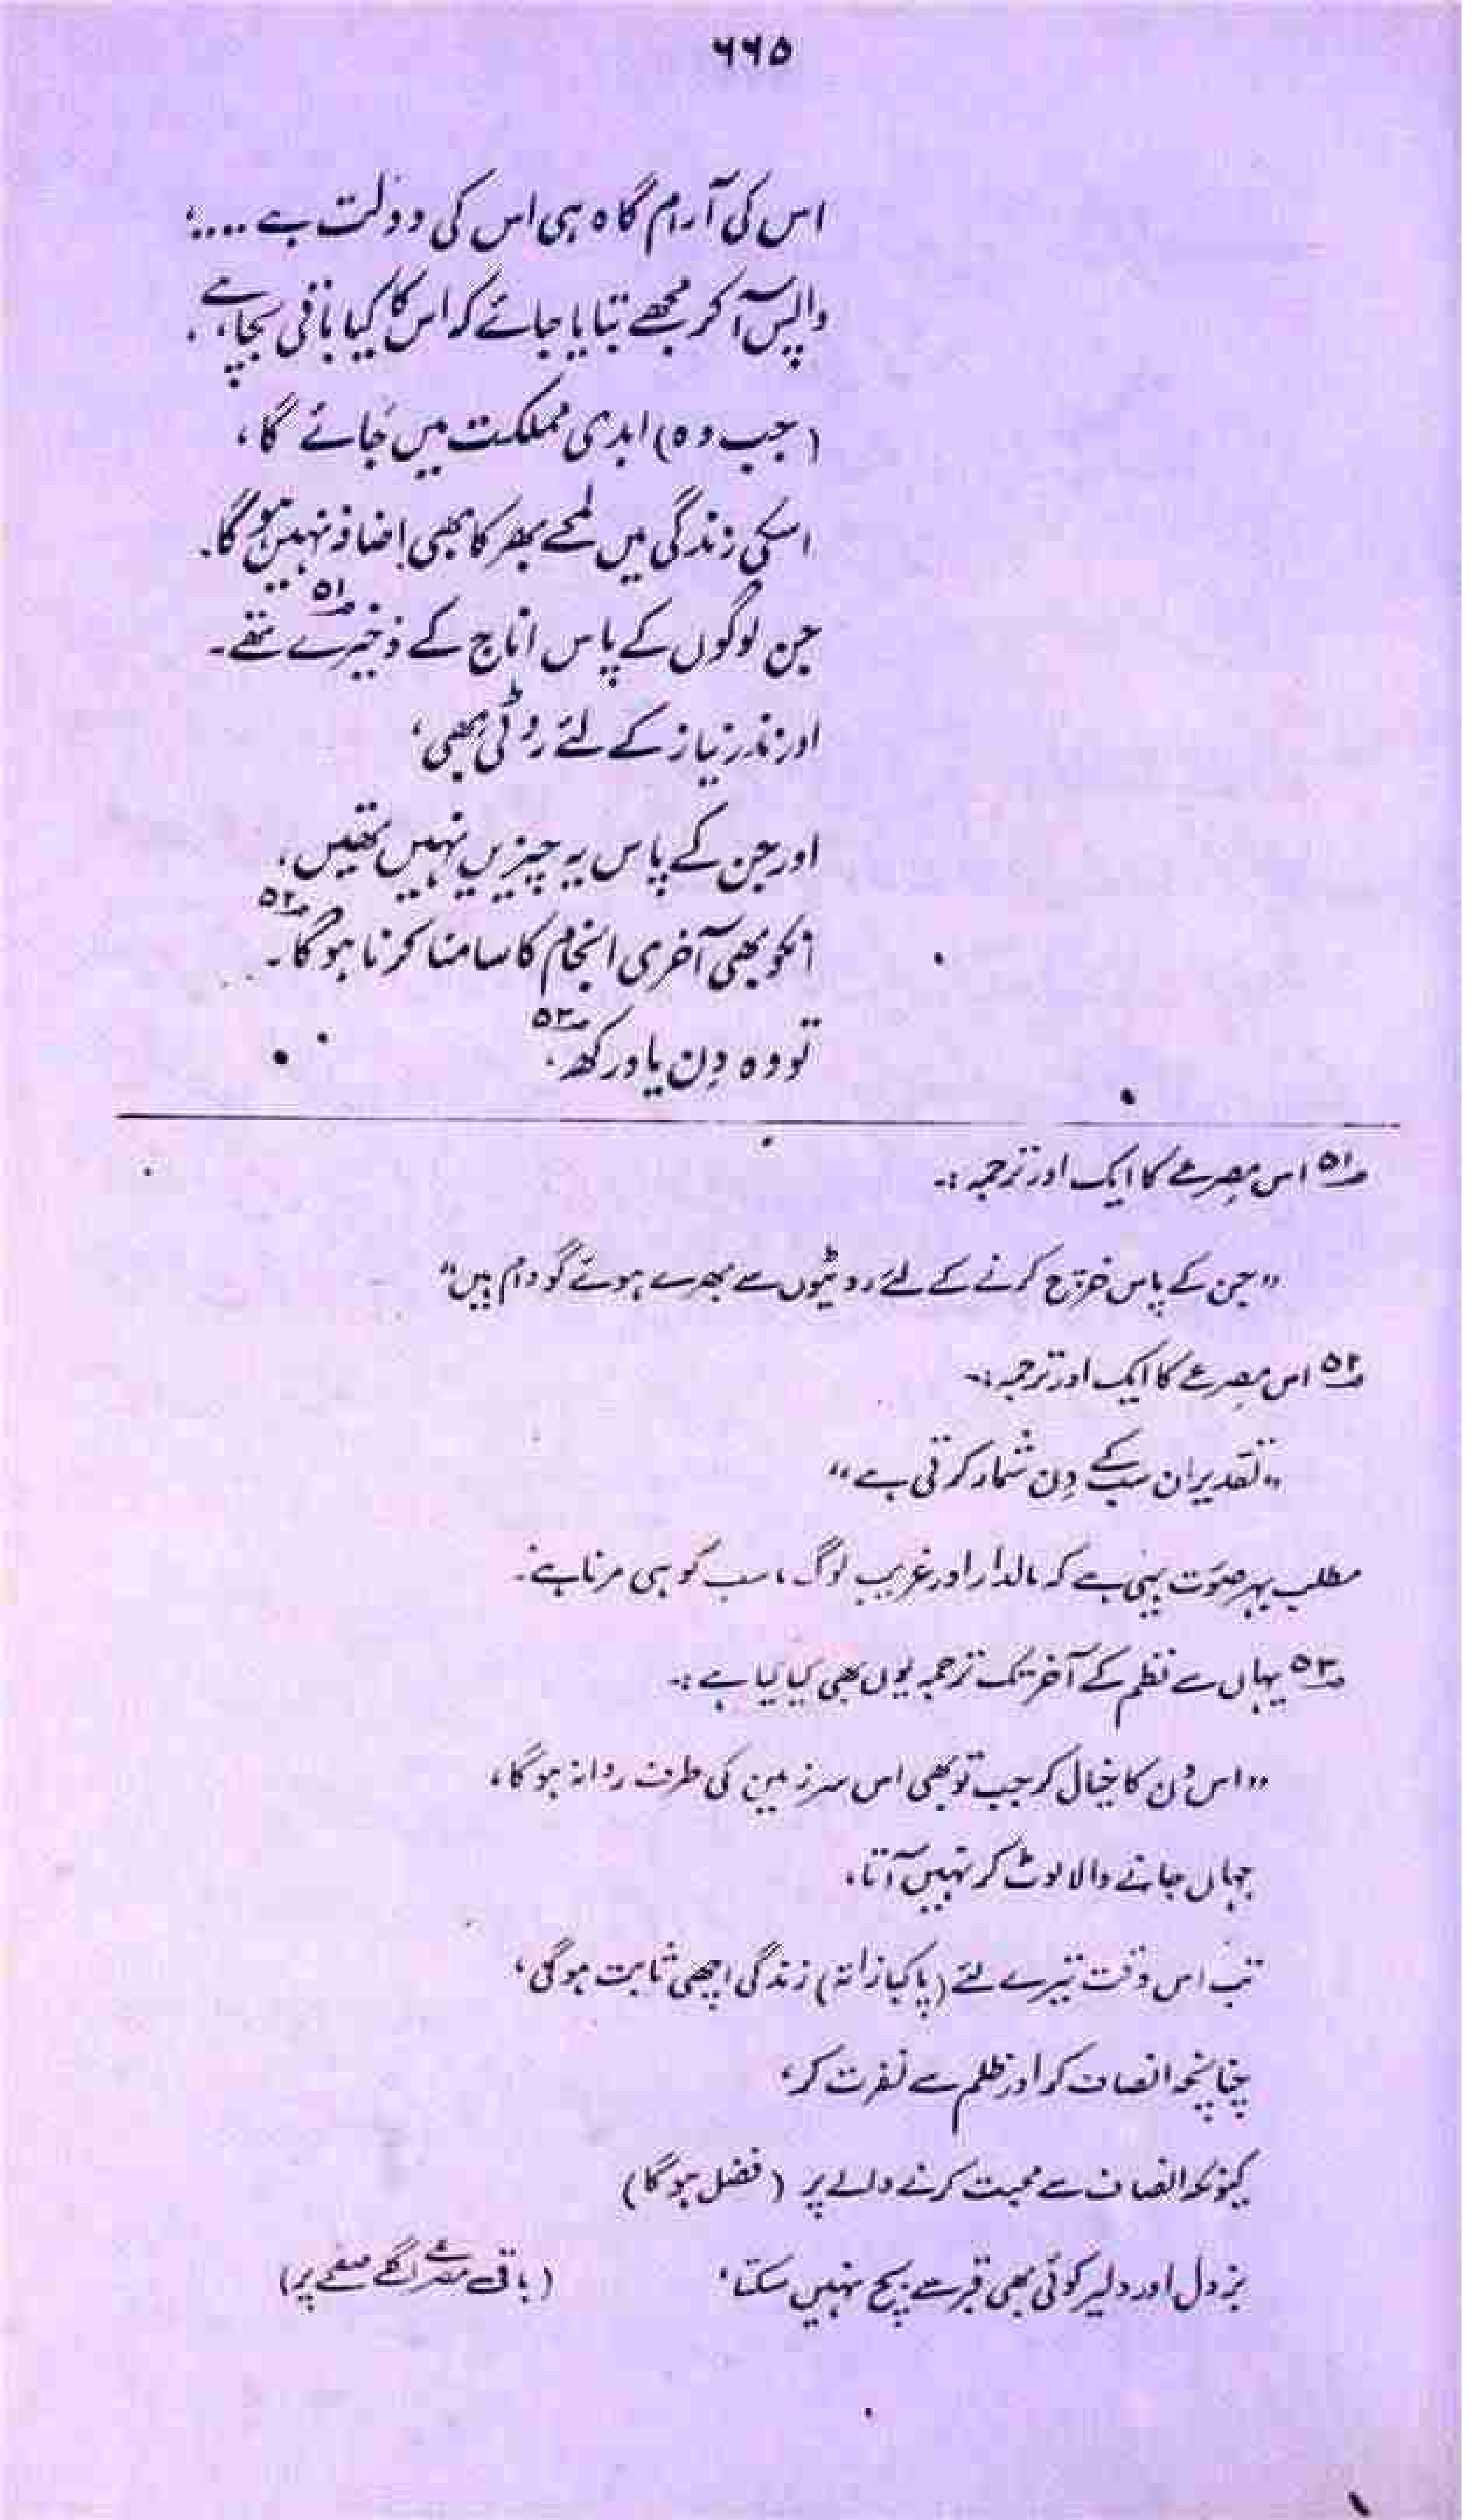 ۶۶۵
اس کی آرام گاہ ہی اس کی دولت ہے ....،
واپس آ کر مجھے بتایا جائے کہ اس کا کیا باقی بچا ہے،
(جب وہ) ابدی مملکت میں جائے گا،
اسکی زندگی میں لمحے بھر کا بھی اضافہ نہیں ہو گا۔
جن لوگوں کے پاس اناج کے ذخیرے تھے۔ ۵۱
اور نذر نیاز کے لئے روٹی بھی،
اور جن کے پاس یہ چیزیں نہیں تھیں،
انکو بھی آخری انجام کا سامنا کرنا ہو گا۔ ۵۲
تو وہ دِن یاد رکھ، ۵۳
۵۱ اس مصرعے کا ایک اور ترجمہ:۔
"جن کے پاس خرچ کرنے کے لئے روٹیوں سے بھرے ہوئے گودام ہیں"
۵۲ اس مصرعے کا ایک اور ترجمہ:۔
"تقدیر ان سب کے دِن شمار کرتی ہے"
مطلب بہر صورت یہی ہے کہ مالدار اور غریب لوگ، سب کو ہی مرنا ہے۔
۵۳ یہاں سے نظم کے آخر تک ترجمہ یوں بھی کیا گیا ہے:۔
"اس دن کا خیال کر جب تو بھی اس سرزمین کی طرف روانہ ہو گا،
جہاں جانے والا لوٹ کر نہیں آتا،
تب اس وقت تیرے لئے (پاکبازانہ) زندگی اچھی ثابت ہو گی،
چنانچہ انصاف کر اور ظلم سے نفرت کر،
کیونکہ انصاف سے محبت کرنے والے پر (فضل ہو گا)
بزدل اور دلیر کوئی بھی قبر سے بچ نہیں سکتا، (باقی مصرعے اگلے صفحے پر)